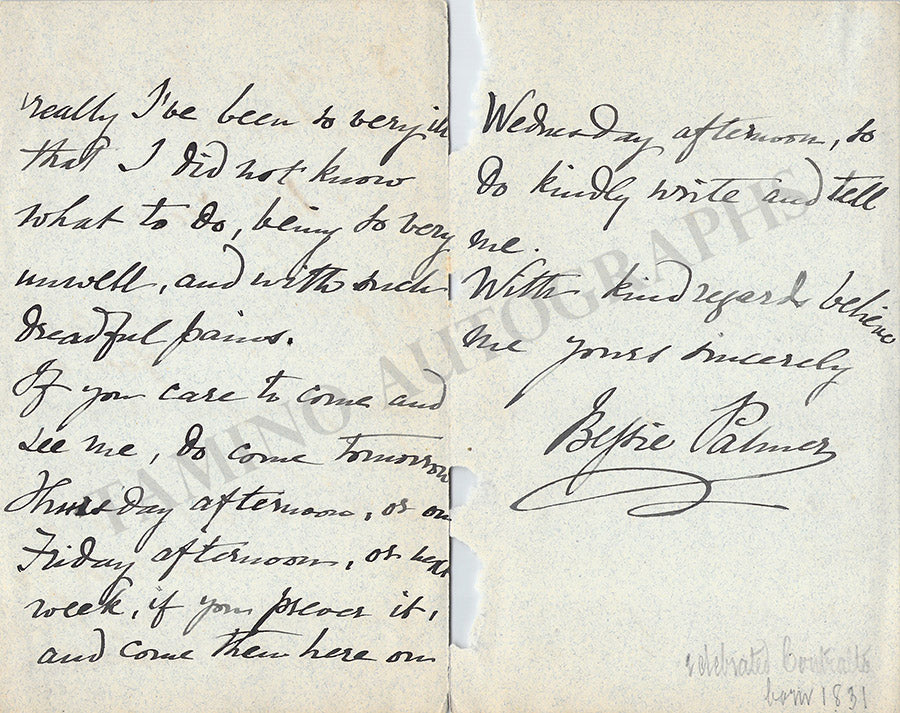 really I've been so very ill
that I did not know
what to do, being so very
unwell, and with such
dreadful pains.
If you care to come and
see me, do come tomorrow
Thursday afternoon, or on
Friday afternoon, or next
week, if you prever it,
and come then here on
Wednesday afternoon, so
do kindly write and tell
me.
With kind regards believe
me yours sincerely
Bessie Palmer
celebrated Contralto
born 1831
TAMINO AUTOGRAPHS